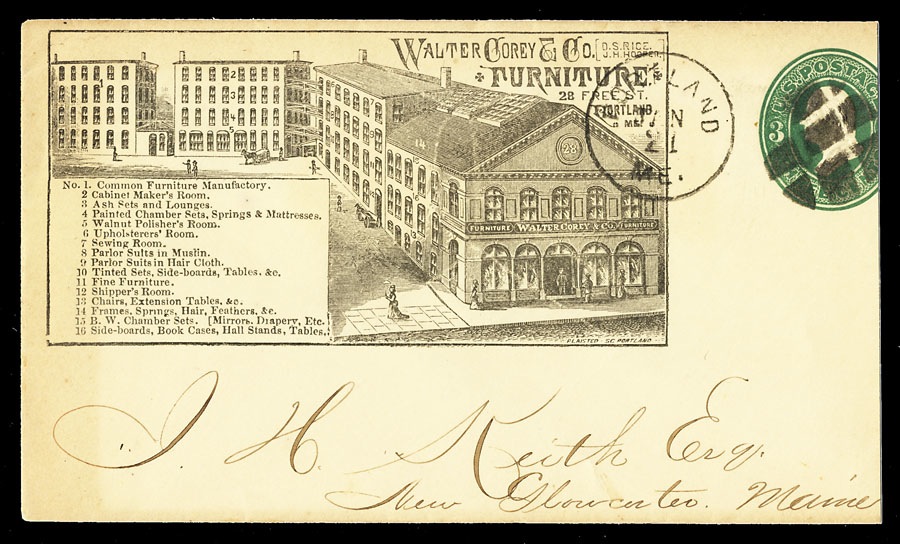 WALTER COREY & CO. [D. S. RICE.
J. H. HOOPER.
FURNITURE.
28 FREE ST.
PORTLAND,
ME.
LAND
N
21
ME.
U.S. POSTAGE
3
1
2
3
4
5
7
14
13
28
FURNITURE WALTER COREY & CO. FURNITURE
No. 1. Common Furniture Manufactory.
2 Cabinet Maker's Room.
3 Ash Sets and Lounges.
4 Painted Chamber Sets, Springs & Mattresses.
5 Walnut Polisher's Room.
6 Upholsterers' Room.
7 Sewing Room.
8 Parlor Suits in Muslin.
9 Parlor Suits in Hair Cloth.
10 Tinted Sets, Side-boards, Tables, &c.
11 Fine Furniture.
12 Shipper's Room.
13 Chairs, Extension Tables, &c.
14 Frames, Springs, Hair, Feathers, &c.
15 B. W. Chamber Sets. [Mirrors, Drapery, Etc.
16 Side-boards, Book Cases, Hall Stands, Tables,
PLAISTED SC. PORTLAND
J. H. Keith Esq.
New Gloucester. Maine